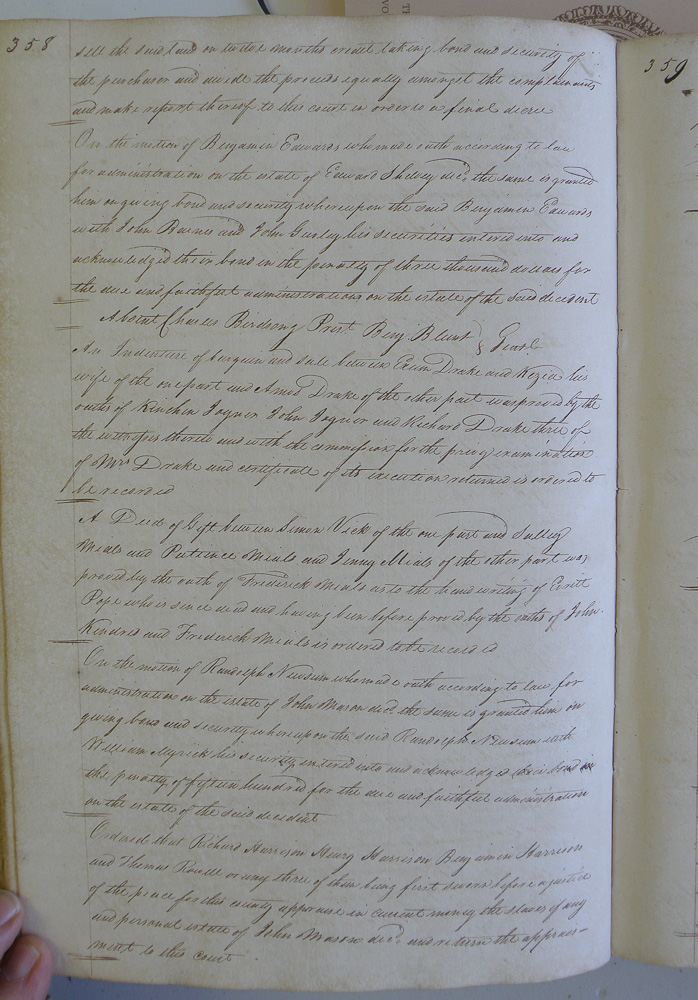 358
sell the said land on twelve months credit taking bond and security of
the purchasor and divide the proceeds equally amongst the complainants
and make report thereof to this court in order to a final decree
On the motion of Benjamin Edwards who made oath according to law
for administration on the estate of Edward Shelley decd. the same is granted
him on giving bond and security whereupon the said Benjamin Edwards
with John Barnes and John Gurley his securities entered into and
acknowledged their bond in the penalty of three thousand dollars for
the due and faithful administration on the estate of the said decedent
Absent Charles Birdsong Prest. Benj. Blunt } Gent.
An Indenture of bargain and sale between Exum Drake and Kezia his
wife of the one part and Amos Drake of the other part was proved by the
oaths of Kinchen Joyner John Joyner and Richard Drake three of
the witnesses thereto and with the commission for the privy examination
of Mrs Drake and certificate of its execution returned is ordered to
be recorded
A Deed of Gift between Simon Vick of the one part and Salley
Meals and Patience Meals and Jenny Meals of the other part was
proved by the oath of Frederick Meals as to the hand writing of
Pope who is since dead and having been before proved by the oaths of John
Kindred and Frederick Meals is ordered to be recorded
On the motion of Randolph Newsum who made oath according to law for
administration on the estate of John Mason decd. the same is granted him on
giving bond and security whereupon the said Randolph Newsum with
William Myrick his security entered into and acknowledged their bond in
the penalty of fifteen hundred for the due and faithful administration
on the estate of the said decedent
Ordered that Richard Harrison Henry Harrison Benjamin Harrison
and Thomas or any three of them being first sworn before a justice
of the peace for this county appraise in current money the slaves if any
and personal estate of John Mason decd. and return the appraise-
ment to this court
359